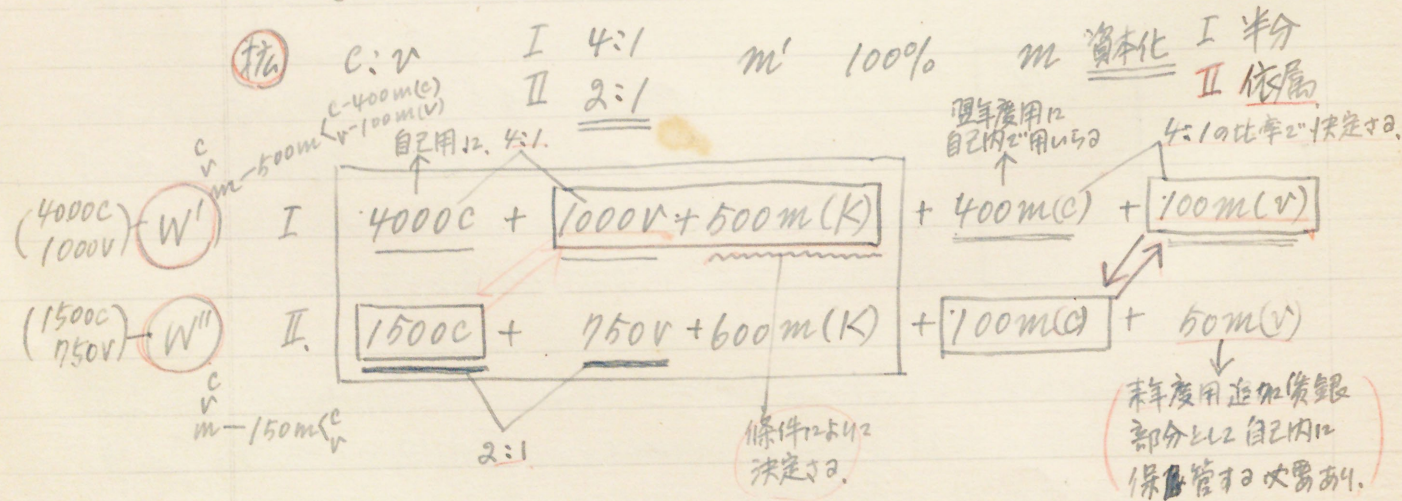 拡 c:v I 4:1 m' 100% m 資本化 I 半分
II 2:1 II 依属
c
v
m-500m<c-400m(c)
v-100m(v)
自己用に、 4:1.
翌年度用に
自己内で用いらる
4:1の比率で決定さる.
(4000c
1000v)-W' I 4000c + 1000v+500m(K) + 400m(c) + 100m(v)
(1500c
750v)-W'' II. 1500c + 750v+600m(K) + 100m(c) + 50m(v)
c
v
m-150m<c
v
2:1
條件によりに
決定さる.
(来年度用追加賃銀
部分として自己内に
保管する必要あり.)